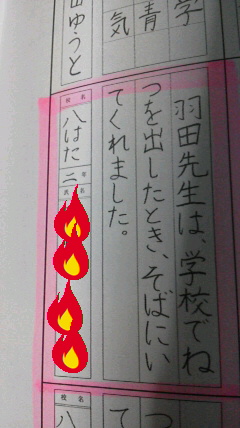 学
青
気
田ゆうと
羽田先生は、学校でね
つを出したとき、そばにい
てくれました。
校名
八はた
二年
氏名
つ
て
校名
八